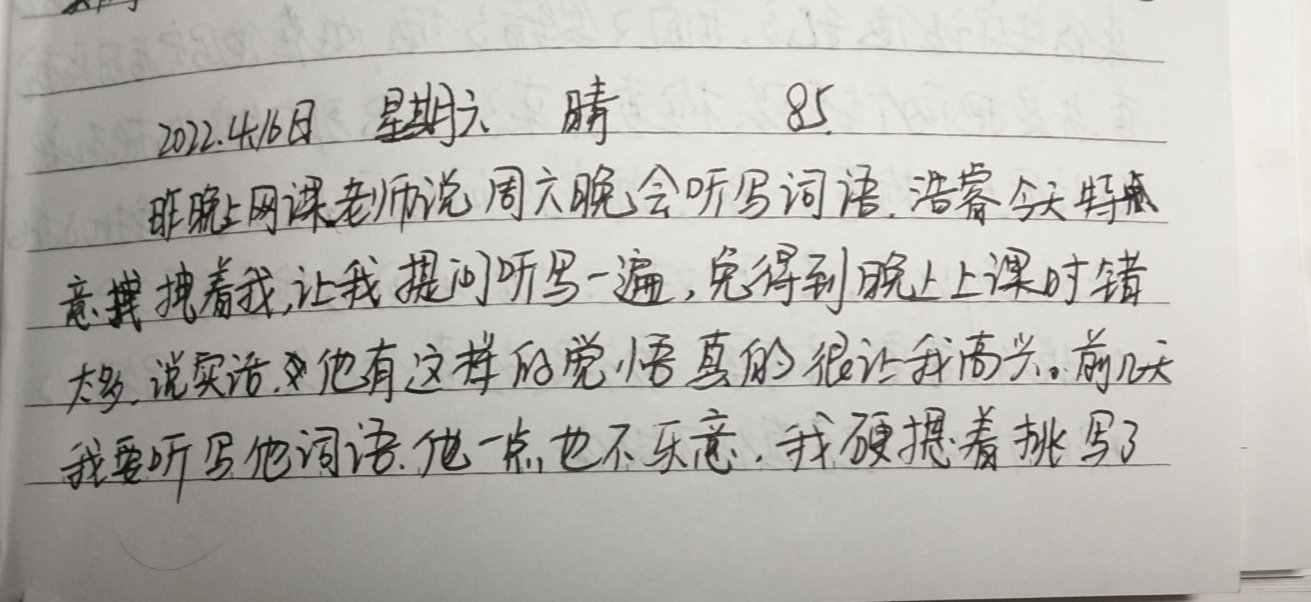 2022.4.16日 星期六 晴 85.
昨晚上网课老师说周六晚会听写词语.浩睿今天特
意拽着我,让我提问听写一遍,免得到晚上上课时错
太多.说实话.他有这样的觉悟真的很让我高兴。前几天
我要听写他词语.他一点也不乐意.我硬提着挑写了